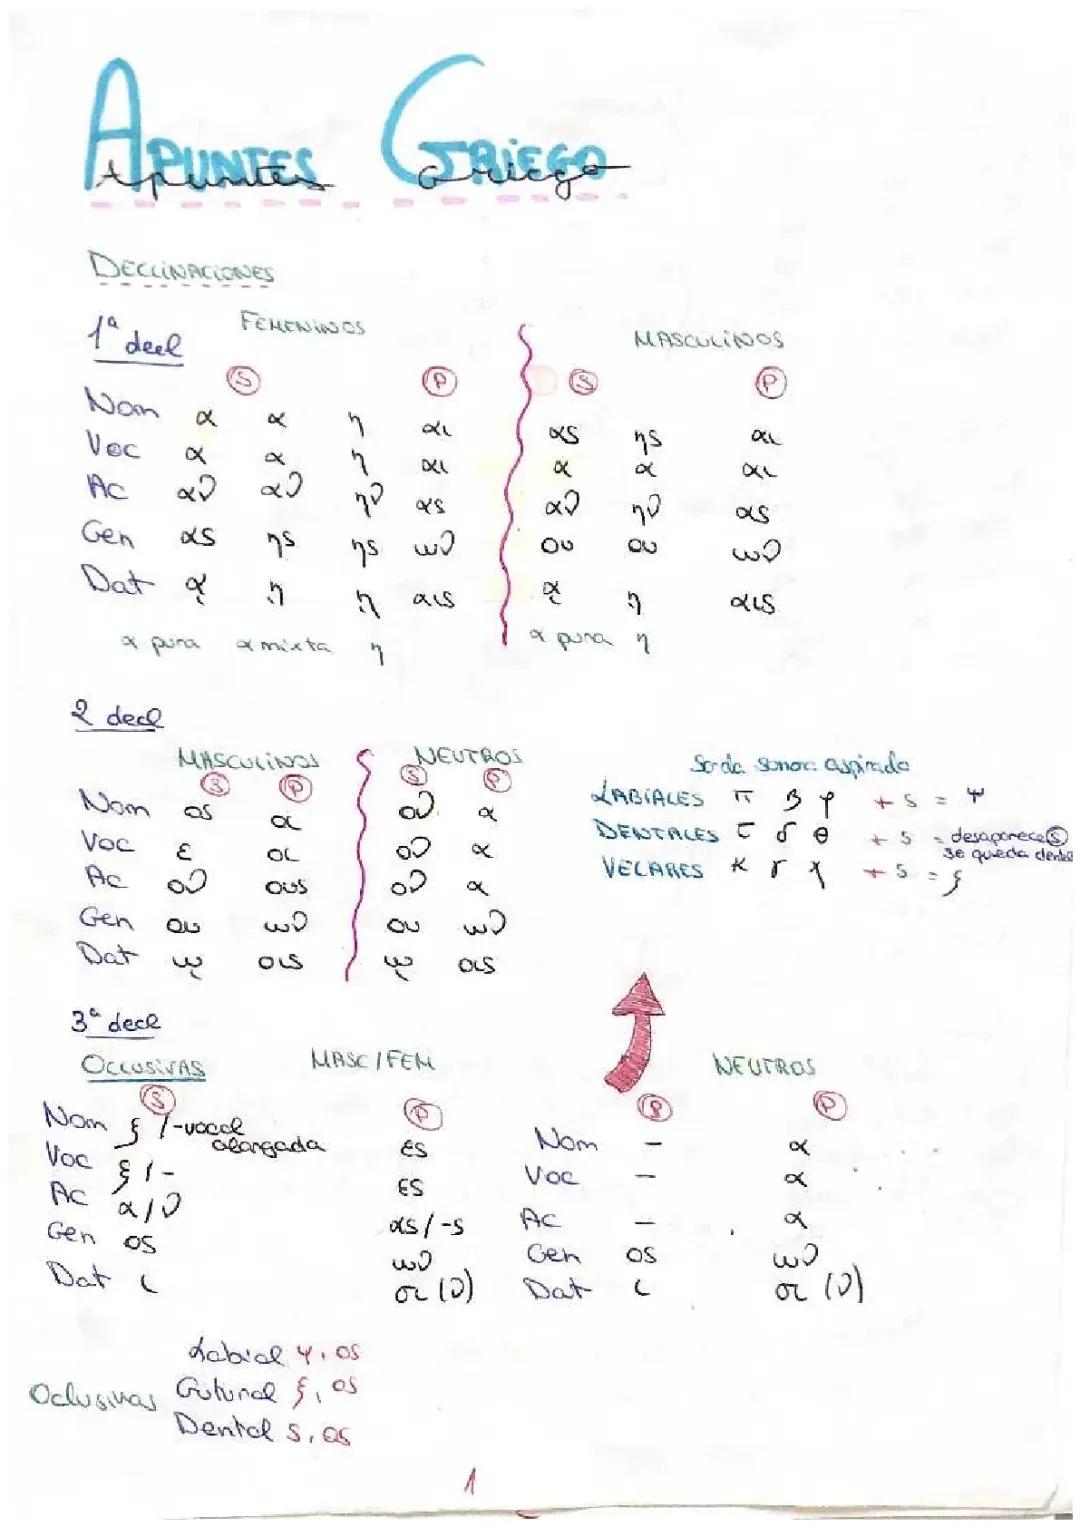 APUNTES GRIEGO
Apuntes Griego
DECLINACIONES
1ª decl FEMENINOS MASCULINOS
S P S P
Nom α α η αι ας ης αι
Voc α α η αι α α αι
Ac αν αν ην ας αν ην ας
Gen ας ης ης ων ου ου ων
Dat ᾳ ῃ ῃ αις ᾳ ῃ αις
α pura α mixta η α pura η
2 decl
MASCULINOS NEUTROS
S P S P
Nom ος οι ον α
Voc ε οι ον α
Ac ον ους ον α
Gen ου ων ου ων
Dat ῳ οις ῳ οις
Sorda sonora aspirada
LABIALES π β φ + s = ψ
DENTALES τ δ θ + s = desaparece S
se queda
VELARES κ γ χ + s = ξ
3ª decl
OCLUSIVAS MASC/FEM NEUTROS
S P S P
Nom ξ /-vocal alargada ες - α
Voc ξ /- ες - α
Ac α/ν ας/-ς - α
Gen ος ων ος ων
Dat ι σι (ν) ι σι (ν)
Oclusivas
Labial ψ, ος
Gutural ξ, ος
Dental ς, ος
1